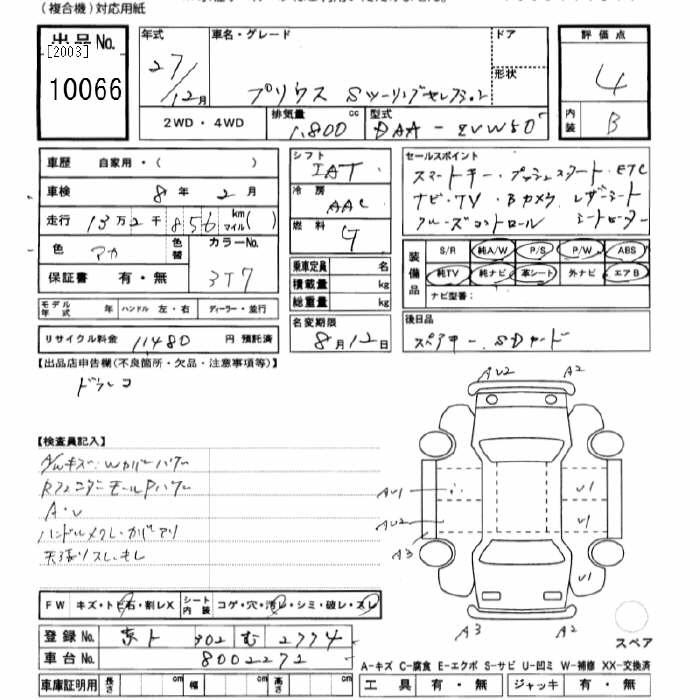 (複合機)対応用紙
出品No.
[2003]
10066
年式
27/12月
車名・グレード
プリウス Sツーリングセレクション
ドア
形状
評価点
4
内装
B
2WD・4WD
排気量
1,800 cc
型式
DAA-ZVW50
車歴 自家用・( )
車検 8年2月
走行 13万2千856 km マイル( )
色 アカ
色替
カラーNo.
3T7
保証書 有・無
モデル年式 年 ハンドル 左・右 ディーラー・並行
リサイクル料金 11480 円 預託済
シフト
IAT
冷房
AAC
燃料
G
乗車定員 名
積載量 kg
総重量 kg
名変期限
8月12日
セールスポイント
スマートキー・プッシュスタート・ETC
ナビ・TV・Bカメラ レザーシート
クルーズコントロール シートヒーター
装備品
S/R 純A/W P/S P/W ABS
純TV 純ナビ 革シート 外ナビ エアB
ナビ型番:
後日品
スペアキー、SDカード
【出品店申告欄(不良箇所・欠品・注意事項等)】
ドラレコ
【検査員記入】
A/Wキズ、Wカバー
A・U
天張りスレ、
FW キズ・トビ石・割レX シート内装 コゲ・穴・汚レ・シミ・破レ・スレ
登録No. 902 む 2774
車台No. 8002272
車庫証明用 長さ cm 幅 cm 高さ cm
AU2 A2
AU1 U1
AU2 U1
A3 U1
A3 A2
スペア
A-キズ C-腐食 E-エクボ S-サビ U-凹ミ W-補修 XX-交換済
工具 有・無 ジャッキ 有・無